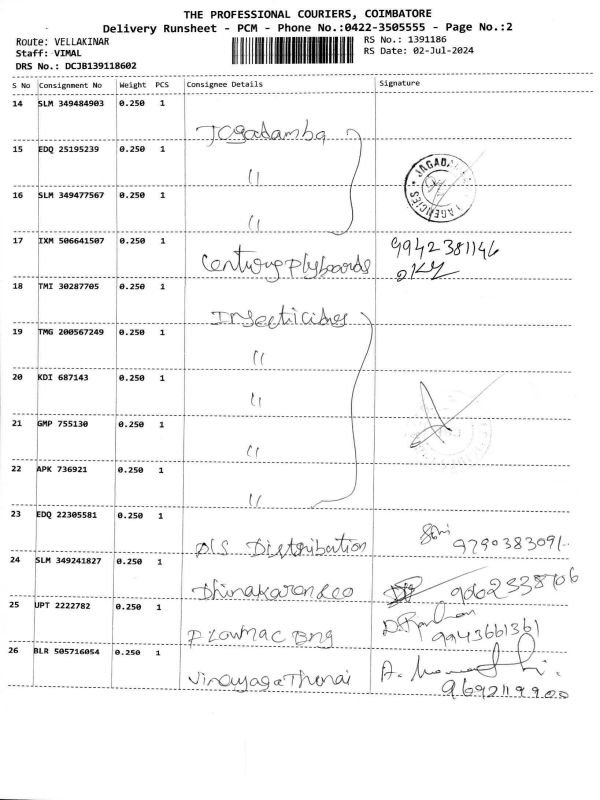 THE PROFESSIONAL COURIERS, COIMBATORE
Delivery Runsheet - PCM - Phone No.:0422-3505555 - Page No.:2
Route: VELLAKINAR
Staff: VIMAL
DRS No.: DCJB139118602
RS No.: 1391186
RS Date: 02-Jul-2024
S No Consignment No Weight PCS Consignee Details Signature
14 SLM 349484903 0.250 1 Jagadamba
15 EDQ 25195239 0.250 1 "
JAGADA AGENCIES
16 SLM 349477567 0.250 1 "
17 IXM 506641507 0.250 1 Century plyboards 9942381146
18 TMI 30287705 0.250 1 Insecticides
19 TMG 200567249 0.250 1 "
20 KDI 687143 0.250 1 "
21 GMP 755130 0.250 1 "
22 APK 736921 0.250 1 "
23 EDQ 22305581 0.250 1 Distribution 9790383091
24 SLM 349241827 0.250 1 Dhinakaran Leo
25 UPT 2222782 0.250 1 Flowmac Eng 9943661361
26 BLR 505716054 0.250 1 Vinayaga